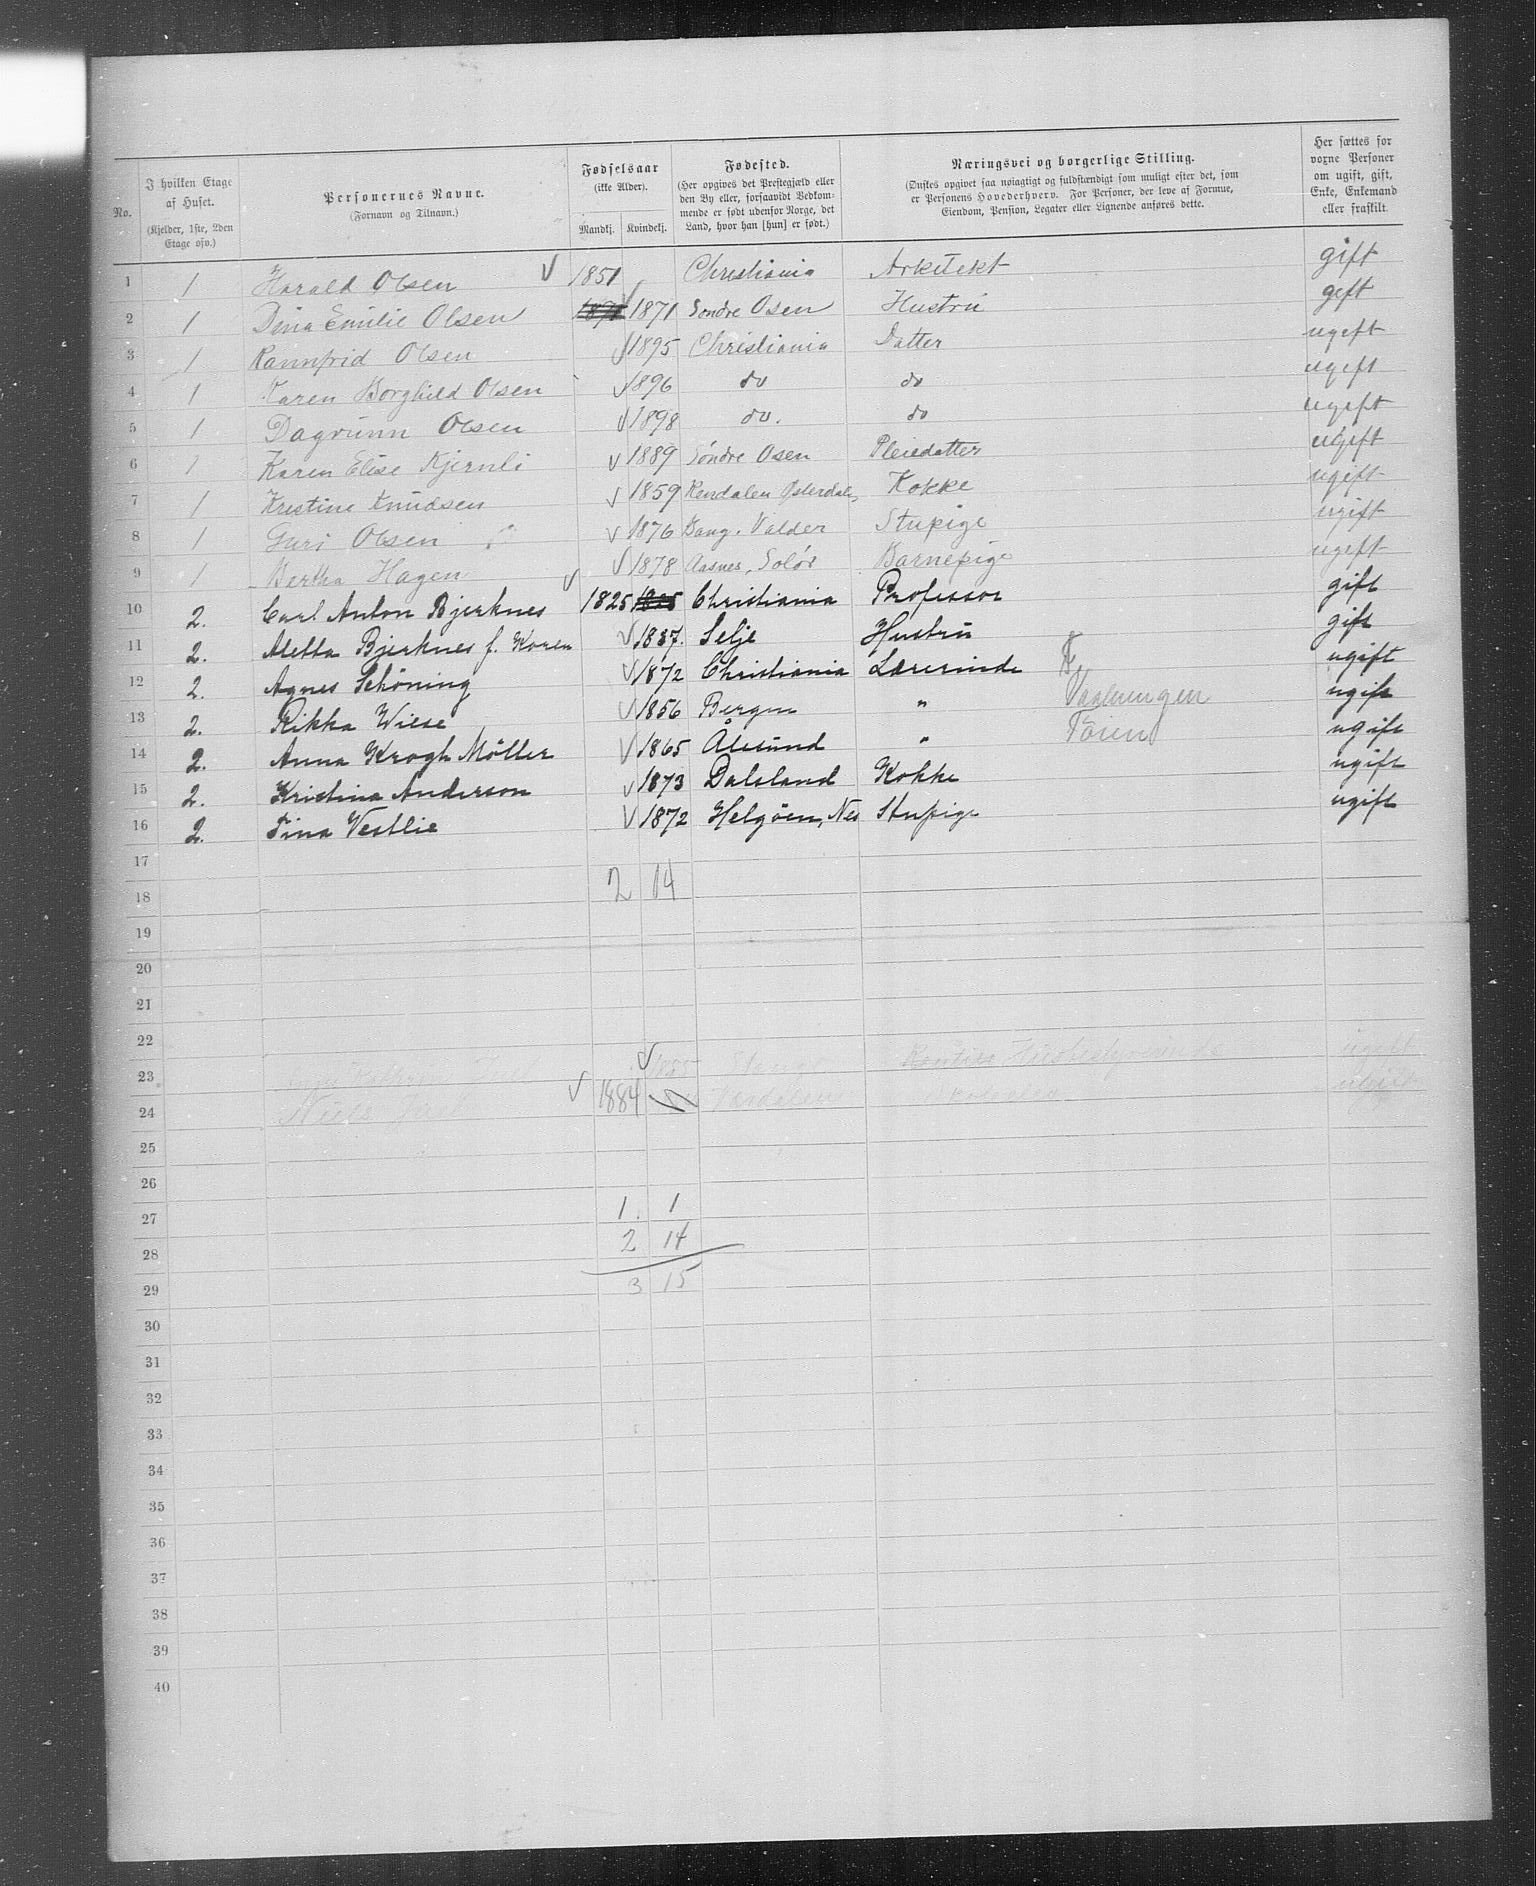 No. | I hvilken Etage af Huset. (Kjelder, 1ste, 2den Etage osv.) | Personernes Navne. (Fornavn og Tilnavn.) | Fødselsaar (ikke Alder). Mandkj. Kvindekj. | Fødested. (Her opgives det Præstegjæld eller den By eller, forsaavidt Vedkommende er født udenfor Norge, det Land, hvor han [hun] er født.) | Næringsvei og borgerlige Stilling. (Ønskes opgivet saa nøiagtigt og fuldstændigt som muligt efter det, som er Personens Hovederhverv. For Personer, der leve af Formue, Eiendom, Pension, Legater eller Lignende anføres dette. | Her sættes for voxne Personer om ugift, gift, Enke, Enkemand eller fraskilt.
1 1 Harald Olsen √ 1851 Christiania Arkitekt gift
2 1 Dina Emilie Olsen 1871 Søndre Osen Hustru gift
3 1 Rannfrid Olsen √ 1895 Christiania Datter ugift
4 1 Karen Borghild Olsen √ 1896 do do ugift
5 1 Dagrunn Olsen √ 1898 do. do ugift
6 1 Karen Elise Kjernli √ 1889 Søndre Osen Pleiedatter ugift
7 1 Kristine Knudsen √ 1859 Rendalen Østerdalen Kokke ugift
8 1 Guri Olsen √ 1876 Bang. Valder Stupige ugift
9 1 Bertha Hagen √ 1878 Aasnes, Solør Barnepige ugift
10 2. Carl Anton Bjerknes √ 1825 Christiania Professor gift
11 2. Aletta Bjerknes f. Koren √ 1837. Selje Hustru gift
12 2. Agnes Schöning √ 1872 Christiania Lærerinde ugift
13 2. Rikka Wiese √ 1856 Bergen " Vaalerengen ugift
14 2. Anna Krogh Möller √ 1865 Ålesund " Töien ugift
15 2. Kristina Anderson √ 1873 Dalsland Kokke ugift
16 2. Tina Vestlie √ 1872 Helgöen, Nes Stupige ugift
17
18 2 14
19
20
21
22
23 √ Husbestyrerinde ugift
24 Niels √ 1884 Værdalen ugift
25
26
27 1. 1
28 2 14
29 3 15
30
31
32
33
34
35
36
37
38
39
40